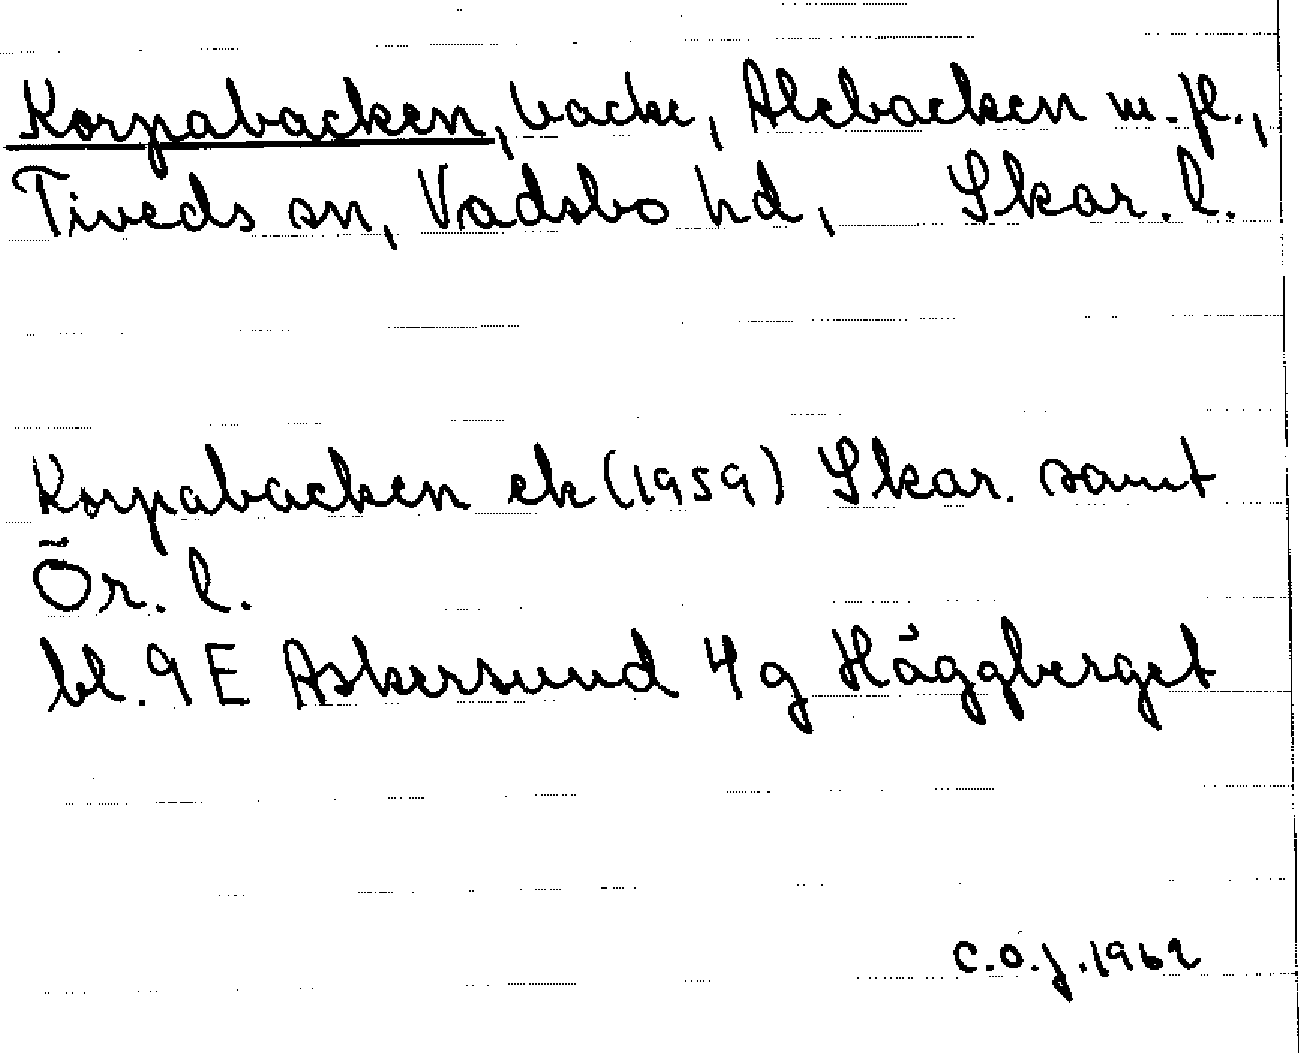 Korpabacken, backe, Alebacken m.fl.,
Tiveds sn, Vadsbo hd, Skar. l.
Korpabacken ek (1959) Skar. samt
Ör. l.
bl. 9 E Askersund 4 g Häggberget
C.O.J. 1962